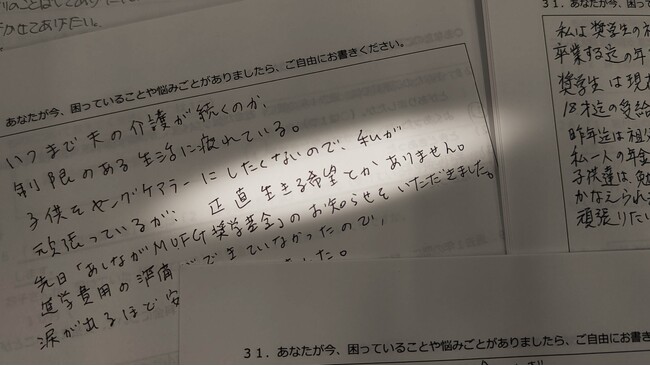 あなたが今、困っていることや悩みごとがありましたら、ご自由にお書きください。
いつまで夫の介護が続くのか、
制限のある生活に疲れている。
子供をヤングケアラーにしたくないので、私が
頑張っているが、正直生きる希望とかありません。
先日「あしながMUFG奨学基金」のお知らせをいただきました。
進学費用の準備
で生ていなかったので、
涙が出るほど安
した。
31．あなたが今、困っていることや悩みごとがありましたら、ご自由にお書き
31．あなたが今、困って
私は奨学生の
卒業する迄の年
奨学生は現
18才迄の受給
昨年迄は祖
私一人の年金
子供達は、勉
かなえられ
頑張りたい
てあげたい。